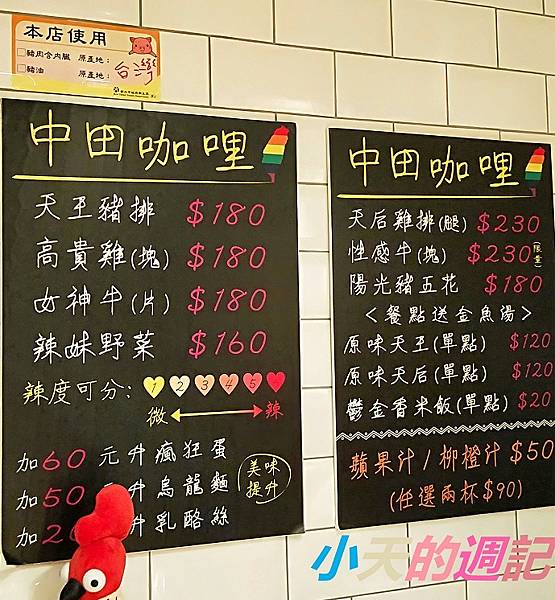 本店使用
□豬肉含內臟 原產地：
□豬油 原產地：
台灣
中田咖哩
天王豬排 $180
高貴雞(塊) $180
女神牛(片) $180
辣妹野菜 $160
辣度可分： 1 2 3 4 5 6
微 辣
加60元升瘋狂蛋
加50 升烏龍麵
加2 升乳酪絲
美味提升
中田咖哩
天后雞排(腿) $230
性感牛(塊) $230(限量)
陽光豬五花 $180
<餐點送金魚湯>
原味天王(單點) $120
原味天后(單點) $120
鬱金香米飯(單點) $20
蘋果汁/柳橙汁 $50
(任選兩杯$90)
小天的週記